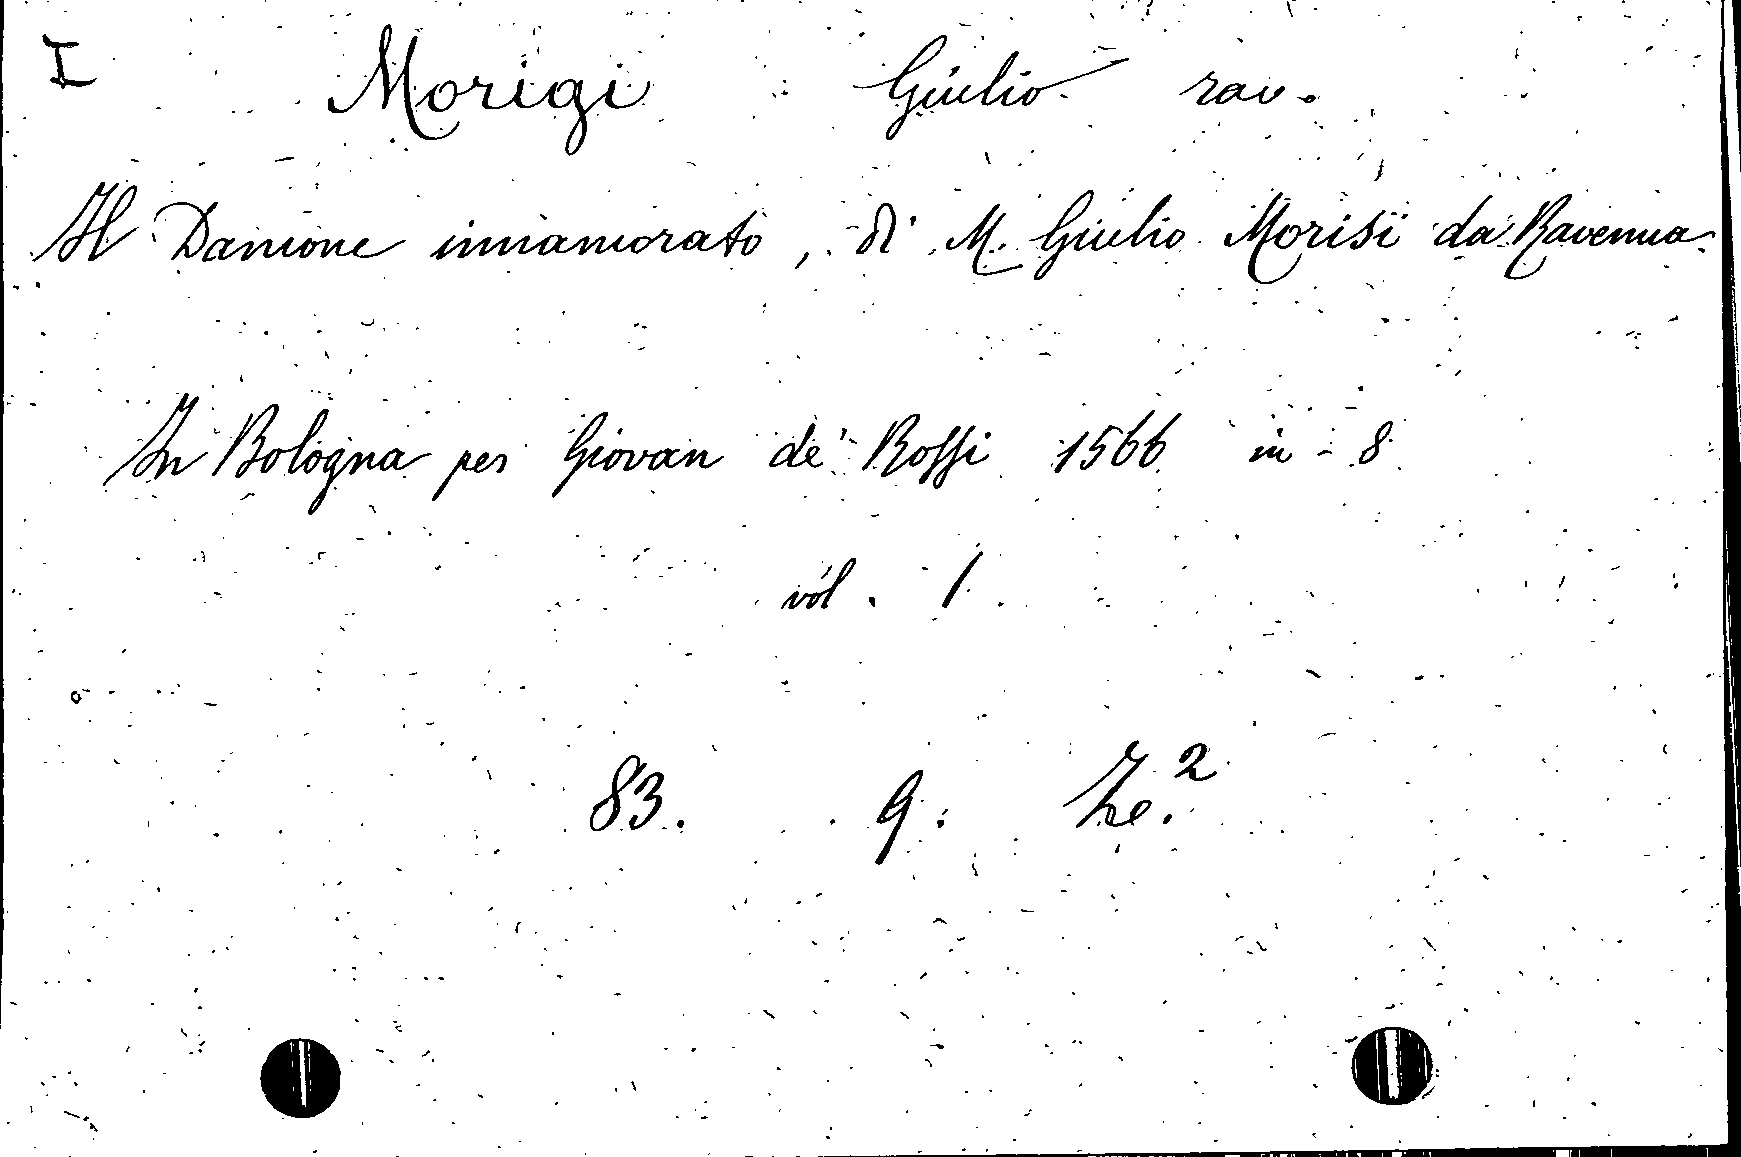 I Morigi Giulio rav.
Il Damone innamorato, di M. Giulio Morisi da Ravenna
In Bologna per Giovan de' Rossi 1566 in-8
vol. 1.
83. 9.